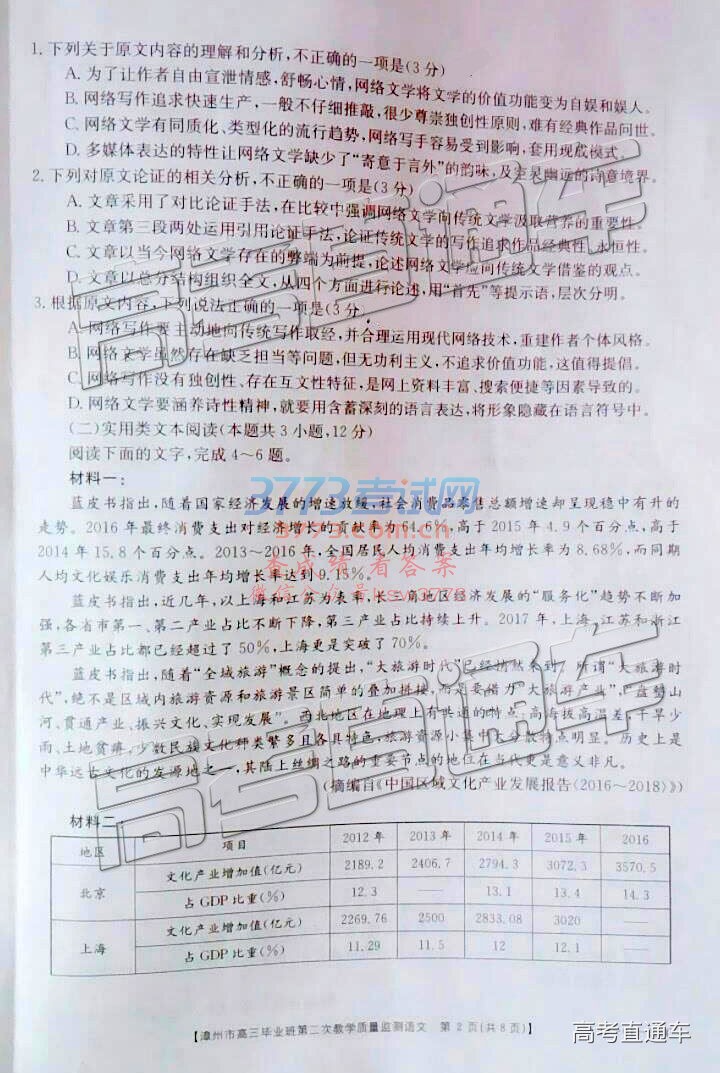 1. 下列关于原文内容的理解和分析,不正确的一项是(3分)
A. 为了让作者自由宣泄情感,舒畅心情,网络文学将文学的价值功能变为自娱和娱人。
B. 网络写作追求快速生产,一般不仔细推敲,很少尊崇独创性原则,难有经典作品问世。
C. 网络文学有同质化、类型化的流行趋势,网络写手容易受到影响,套用现成模式。
D. 多媒体表达的特性让网络文学缺少了“寄意于言外”的韵味,及空灵幽远的诗意境界。
2. 下列对原文论证的相关分析,不正确的一项是(3分)
A. 文章采用了对比论证手法,在比较中强调网络文学向传统文学汲取营养的重要性。
B. 文章第三段两处运用引用论证手法,论证传统文学的写作追求作品经典性、永恒性。
C. 文章以当今网络文学存在的弊端为前提,论述网络文学应向传统文学借鉴的观点。
D. 文章以总分结构组织全文,从四个方面进行论述,用“首先”等提示语,层次分明。
3. 根据原文内容,下列说法正确的一项是(3分)
A. 网络写作要主动地向传统写作取经,并合理运用现代网络技术,重建作者个体风格。
B. 网络文学虽然存在缺乏担当等问题,但无功利主义,不追求价值功能,这值得提倡。
C. 网络写作没有独创性、存在互文性特征,是网上资料丰富、搜索便捷等因素导致的。
D. 网络文学要涵养诗性精神,就要用含蓄深刻的语言表达,将形象隐藏在语言符号中。
(二)实用类文本阅读(本题共3小题,12分)
阅读下面的文字,完成4~6题。
材料一:
蓝皮书指出,随着国家经济发展的增速放缓,社会消费品零售总额增速却呈现稳中有升的
走势。2016年最终消费支出对经济增长的贡献率为64.6%,高于2015年4.9个百分点,高于
2014年15.8个百分点。2013~2016年,全国居民人均消费支出年均增长率为8.68%,而同期
人均文化娱乐消费支出年均增长率达到9.15%。
蓝皮书指出,近几年,以上海和江苏为表率,长三角地区经济发展的“服务化”趋势不断加
强,各省市第一、第二产业占比不断下降,第三产业占比持续上升。2017年,上海、江苏和浙江
第三产业占比都已经超过了50%,上海更是突破了70%。
蓝皮书指出,随着“全域旅游”概念的提出,“大旅游时代”已经悄然来到。所谓“大旅游时
代”,绝不是区域内旅游资源和旅游景区简单的叠加拼接,而是要借力“大旅游产业”,“盘整山
河、贯通产业、振兴文化、实现发展”。西北地区在地理上有共通的特点:高海拔高温差,干旱少
雨、土地贫瘠,少数民族文化种类繁多且各具特色,旅游资源小集中大分散特点明显。历史上是
中华远古文化的发源地之一,其陆上丝绸之路的重要节点的地位在当代更是意义非凡。
(摘编自《中国区域文化产业发展报告(2016~2018)》)
材料二:
地区 项目 2012年 2013年 2014年 2015年 2016
北京 文化产业增加值(亿元) 2189.2 2406.7 2794.3 3072.3 3570.5
占GDP比重(%) 12.3 —— 13.1 13.4 14.3
上海 文化产业增加值(亿元) 2269.76 2500 2833.08 3020 ——
占GDP比重(%) 11.29 11.5 12 12.1 ——
【漳州市高三毕业班第二次教学质量监测语文 第2页(共8页)】
高考直通车
高考直通车
高考直通车
3773考试网
3773.com.cn
查成绩 看答案